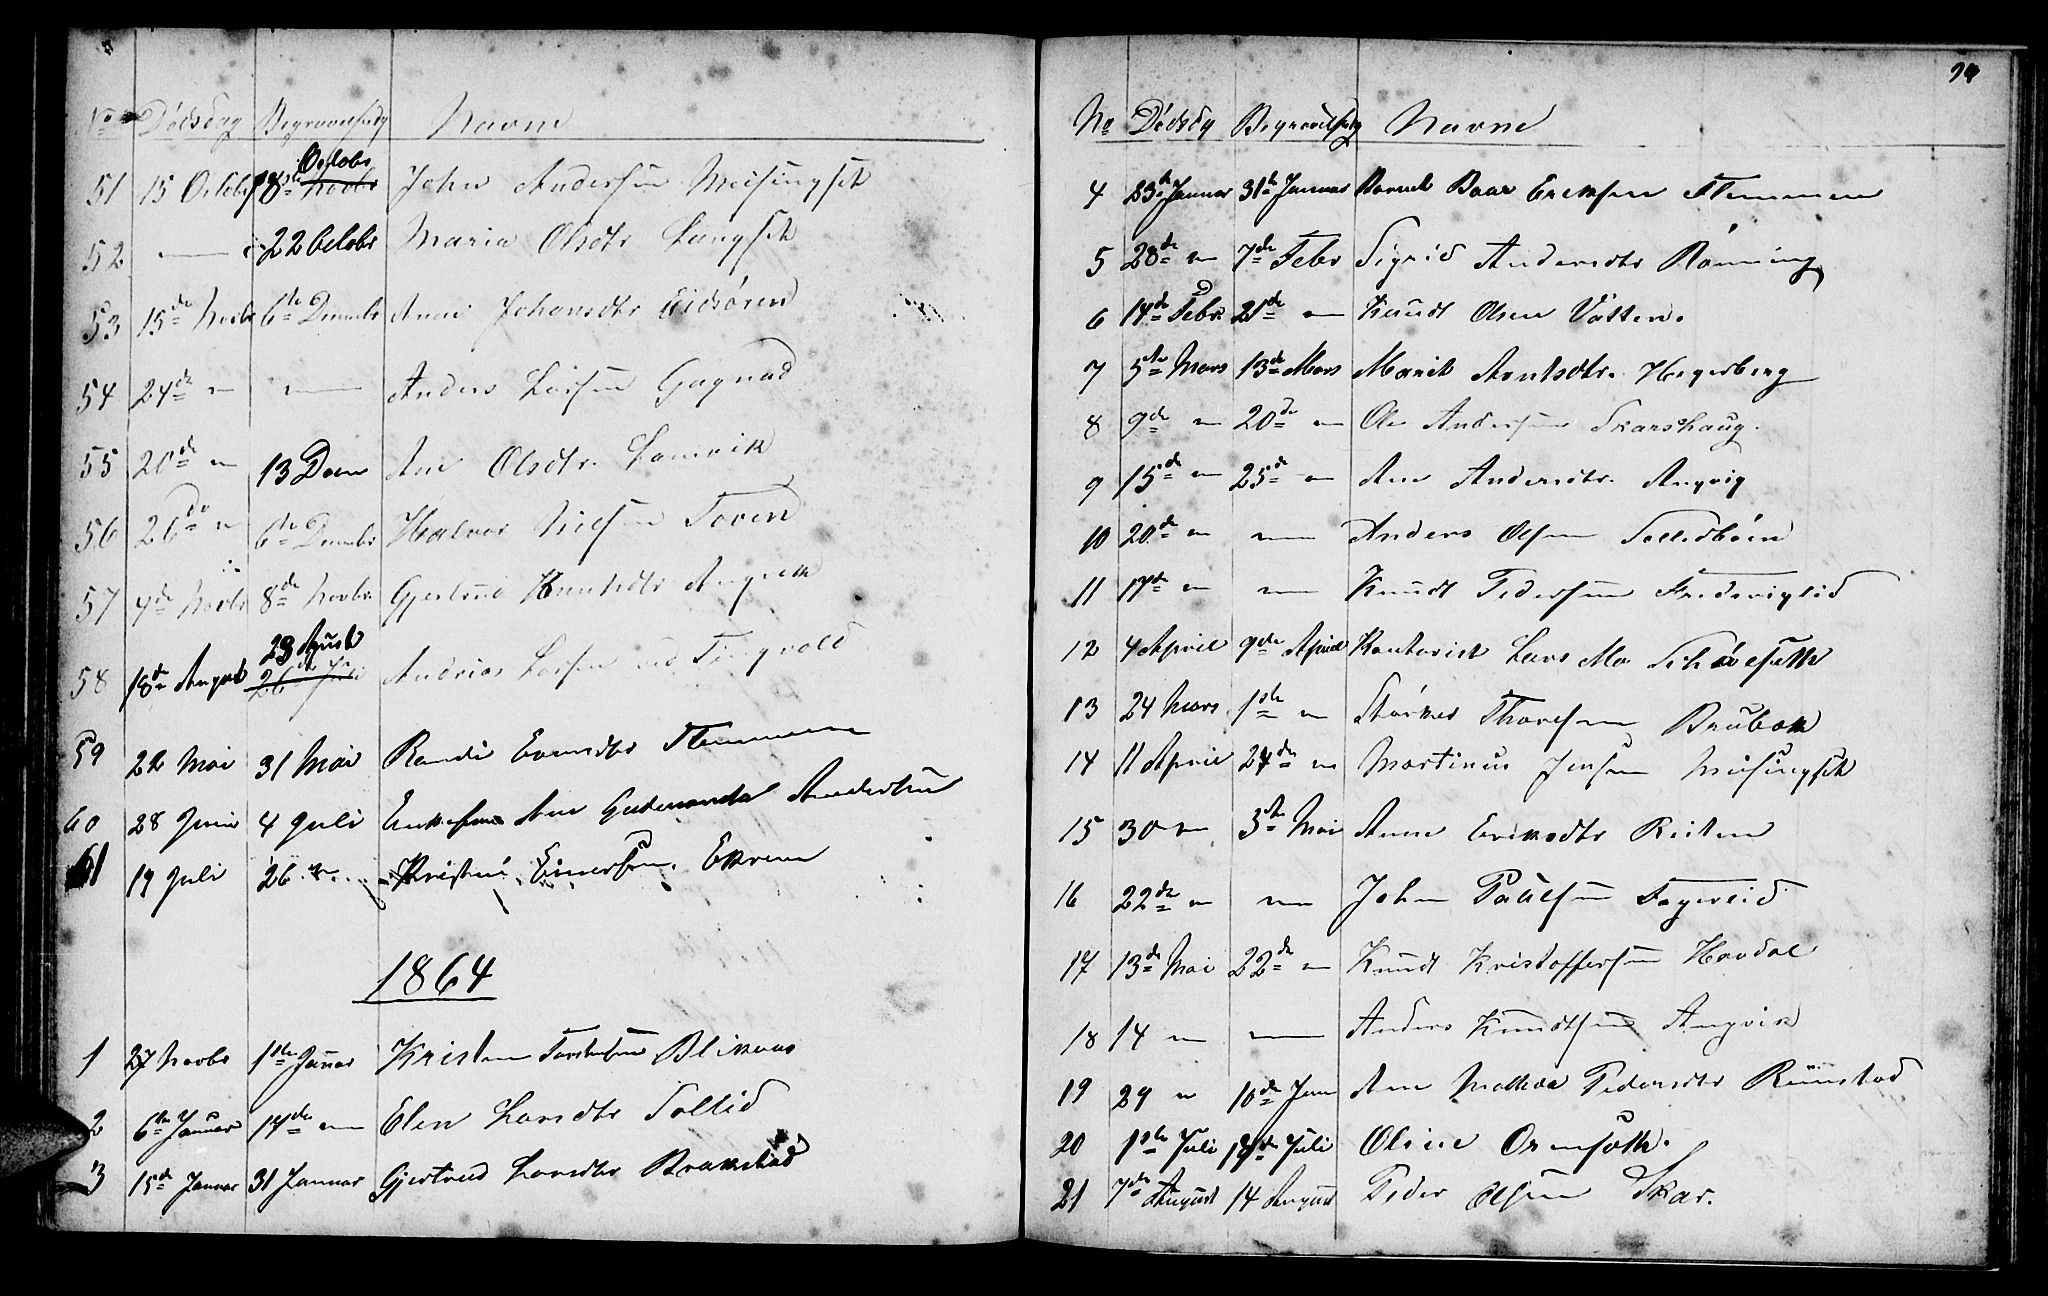 No Dödsdag Begravelsdag Navne
51 15 Octobr 18de Novbr Octobr John Andersen Meisingset
52 — 22 Octobr Maria Olsdtr Langset
53 15de Novbr 6te Decembr Ane Johansdtr Eidsören
54 24de " — Anders Larsen Gagnad
55 20de " 13 Decm Ane Olsdtr. Hamvik
56 26de " 6te Decembr Halvor Nielsen Toven
57 4de Novbr 8de Novbr. Gjertrud Knutsdtr Angvik
58 18de August 26de Juli 23 August Andreas Larsen ved Tingvold
59 22 Mai 31 Mai Randi Evensdtr Stemmen
60 28 Juni 4 Juli Enkefrue Ane Andersen
61 19 Juli 26 " Kristine Einersen Ekren
1864
1 27 Novbr 1ste Januar Kristen Torstensen Blikaas
2 6te Januar 17de " Elen Larsdtr Sollid
3 15de Januar 31 Januar Gjertrud Larsdtr Brakstad
94
No Dödsdg Begravelsdag Navne
4 23de Januar 31te Januar Roar Eriksen Stemmen
5 28de " 7de Febr Sigrid Andersdtr Rönning
6 14de Febr. 21de " Knudt Olsen Vaatten.
7 5te Mars 13de Mars Marit Arntsdtr. Hegerberg
8 9de " 20de " Ole Andersen Skarshaug.
9 15de " 25de " Ane Andersdtr. Angvig
10 20de " — Anders Olsen Sollidböen
11 17de " — Knudt Pedersen Fredsviglid
12 4 April 9de April Lars Mo
13 24 Mars 1ste " Størker Thoresen Brubak
14 11 April 24de " Martinus Jensen Meisingset
15 30 " 3die Mai Anne Eriksdtr Reiten
16 22de " — John Paulsen Fagerlid
17 13de Mai 22de " Knudt Kristoffersen Havdal
18 14 " — Anders Knudtsen Angvik
19 29 " 10de Juni Ane Mallena Pedersdtr Rimstad
20 1ste Juli 14de Juli Oline Ormset.
21 7de August 14 August Peder Olsen Skar.